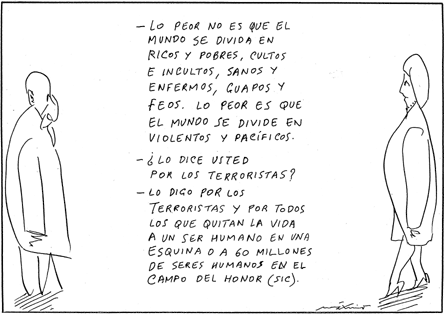 – LO PEOR NO ES QUE EL
MUNDO SE DIVIDA EN
RICOS Y POBRES, CULTOS
E INCULTOS, SANOS Y
ENFERMOS, GUAPOS Y
FEOS. LO PEOR ES QUE
EL MUNDO SE DIVIDE EN
VIOLENTOS Y PACÍFICOS.
– ¿LO DICE USTED
POR LOS TERRORISTAS?
– LO DIGO POR LOS
TERRORISTAS Y POR TODOS
LOS QUE QUITAN LA VIDA
A UN SER HUMANO EN UNA
ESQUINA O A 60 MILLONES
DE SERES HUMANOS EN EL
CAMPO DEL HONOR (SIC).